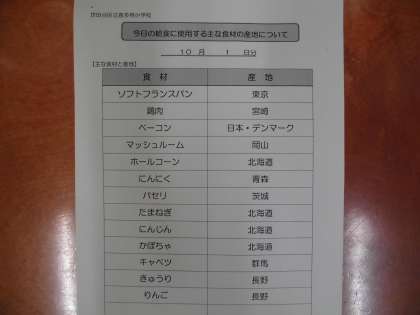 世田谷区立喜多見小学校
今日の給食に使用する主な食材の産地について
10 月 1 日分
【主な食材と産地】
食 材 産 地
ソフトフランスパン 東京
鶏肉 宮崎
ベーコン 日本・デンマーク
マッシュルーム 岡山
ホールコーン 北海道
にんにく 青森
パセリ 茨城
たまねぎ 北海道
にんじん 北海道
かぼちゃ 北海道
キャベツ 群馬
きゅうり 長野
りんご 長野